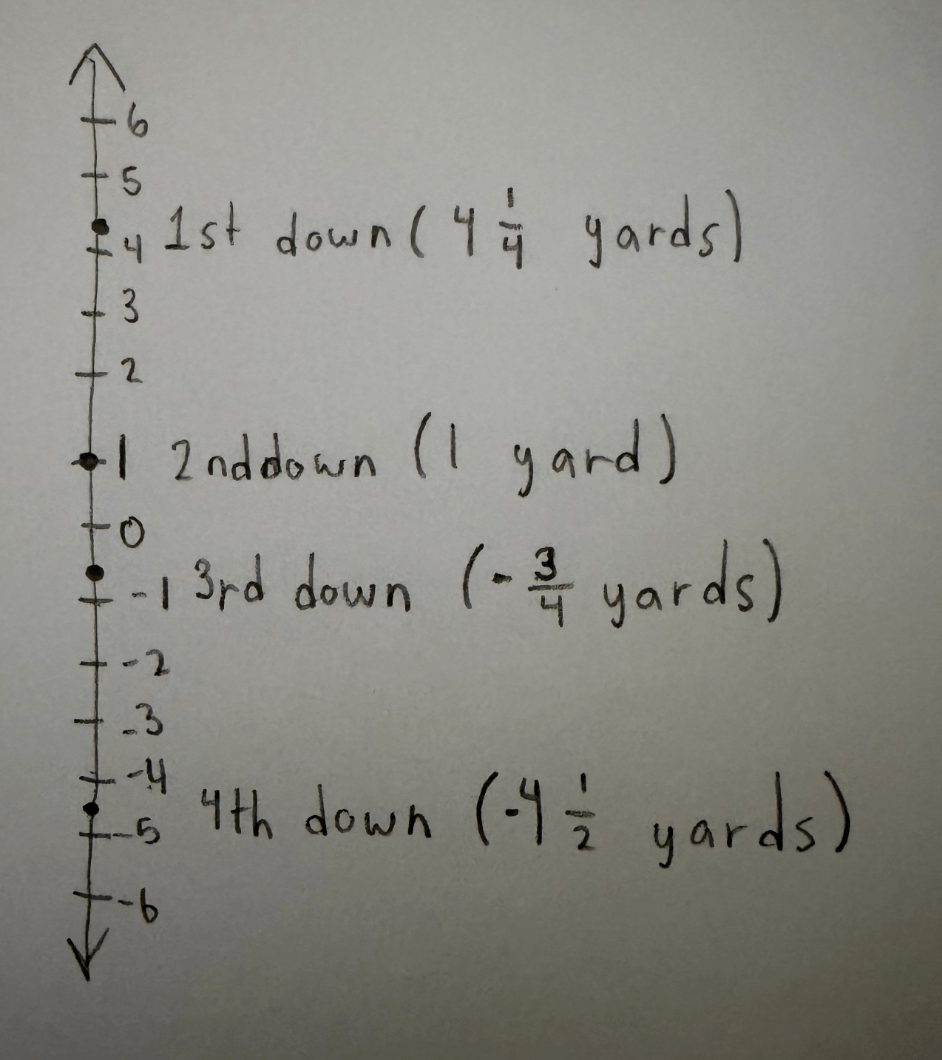 6
5
4 1st down (4 1/4 yards)
3
2
1 2nd down (1 yard)
0
-1 3rd down (-3/4 yards)
-2
-3
-4
4th down (-4 1/2 yards)
-5
-6